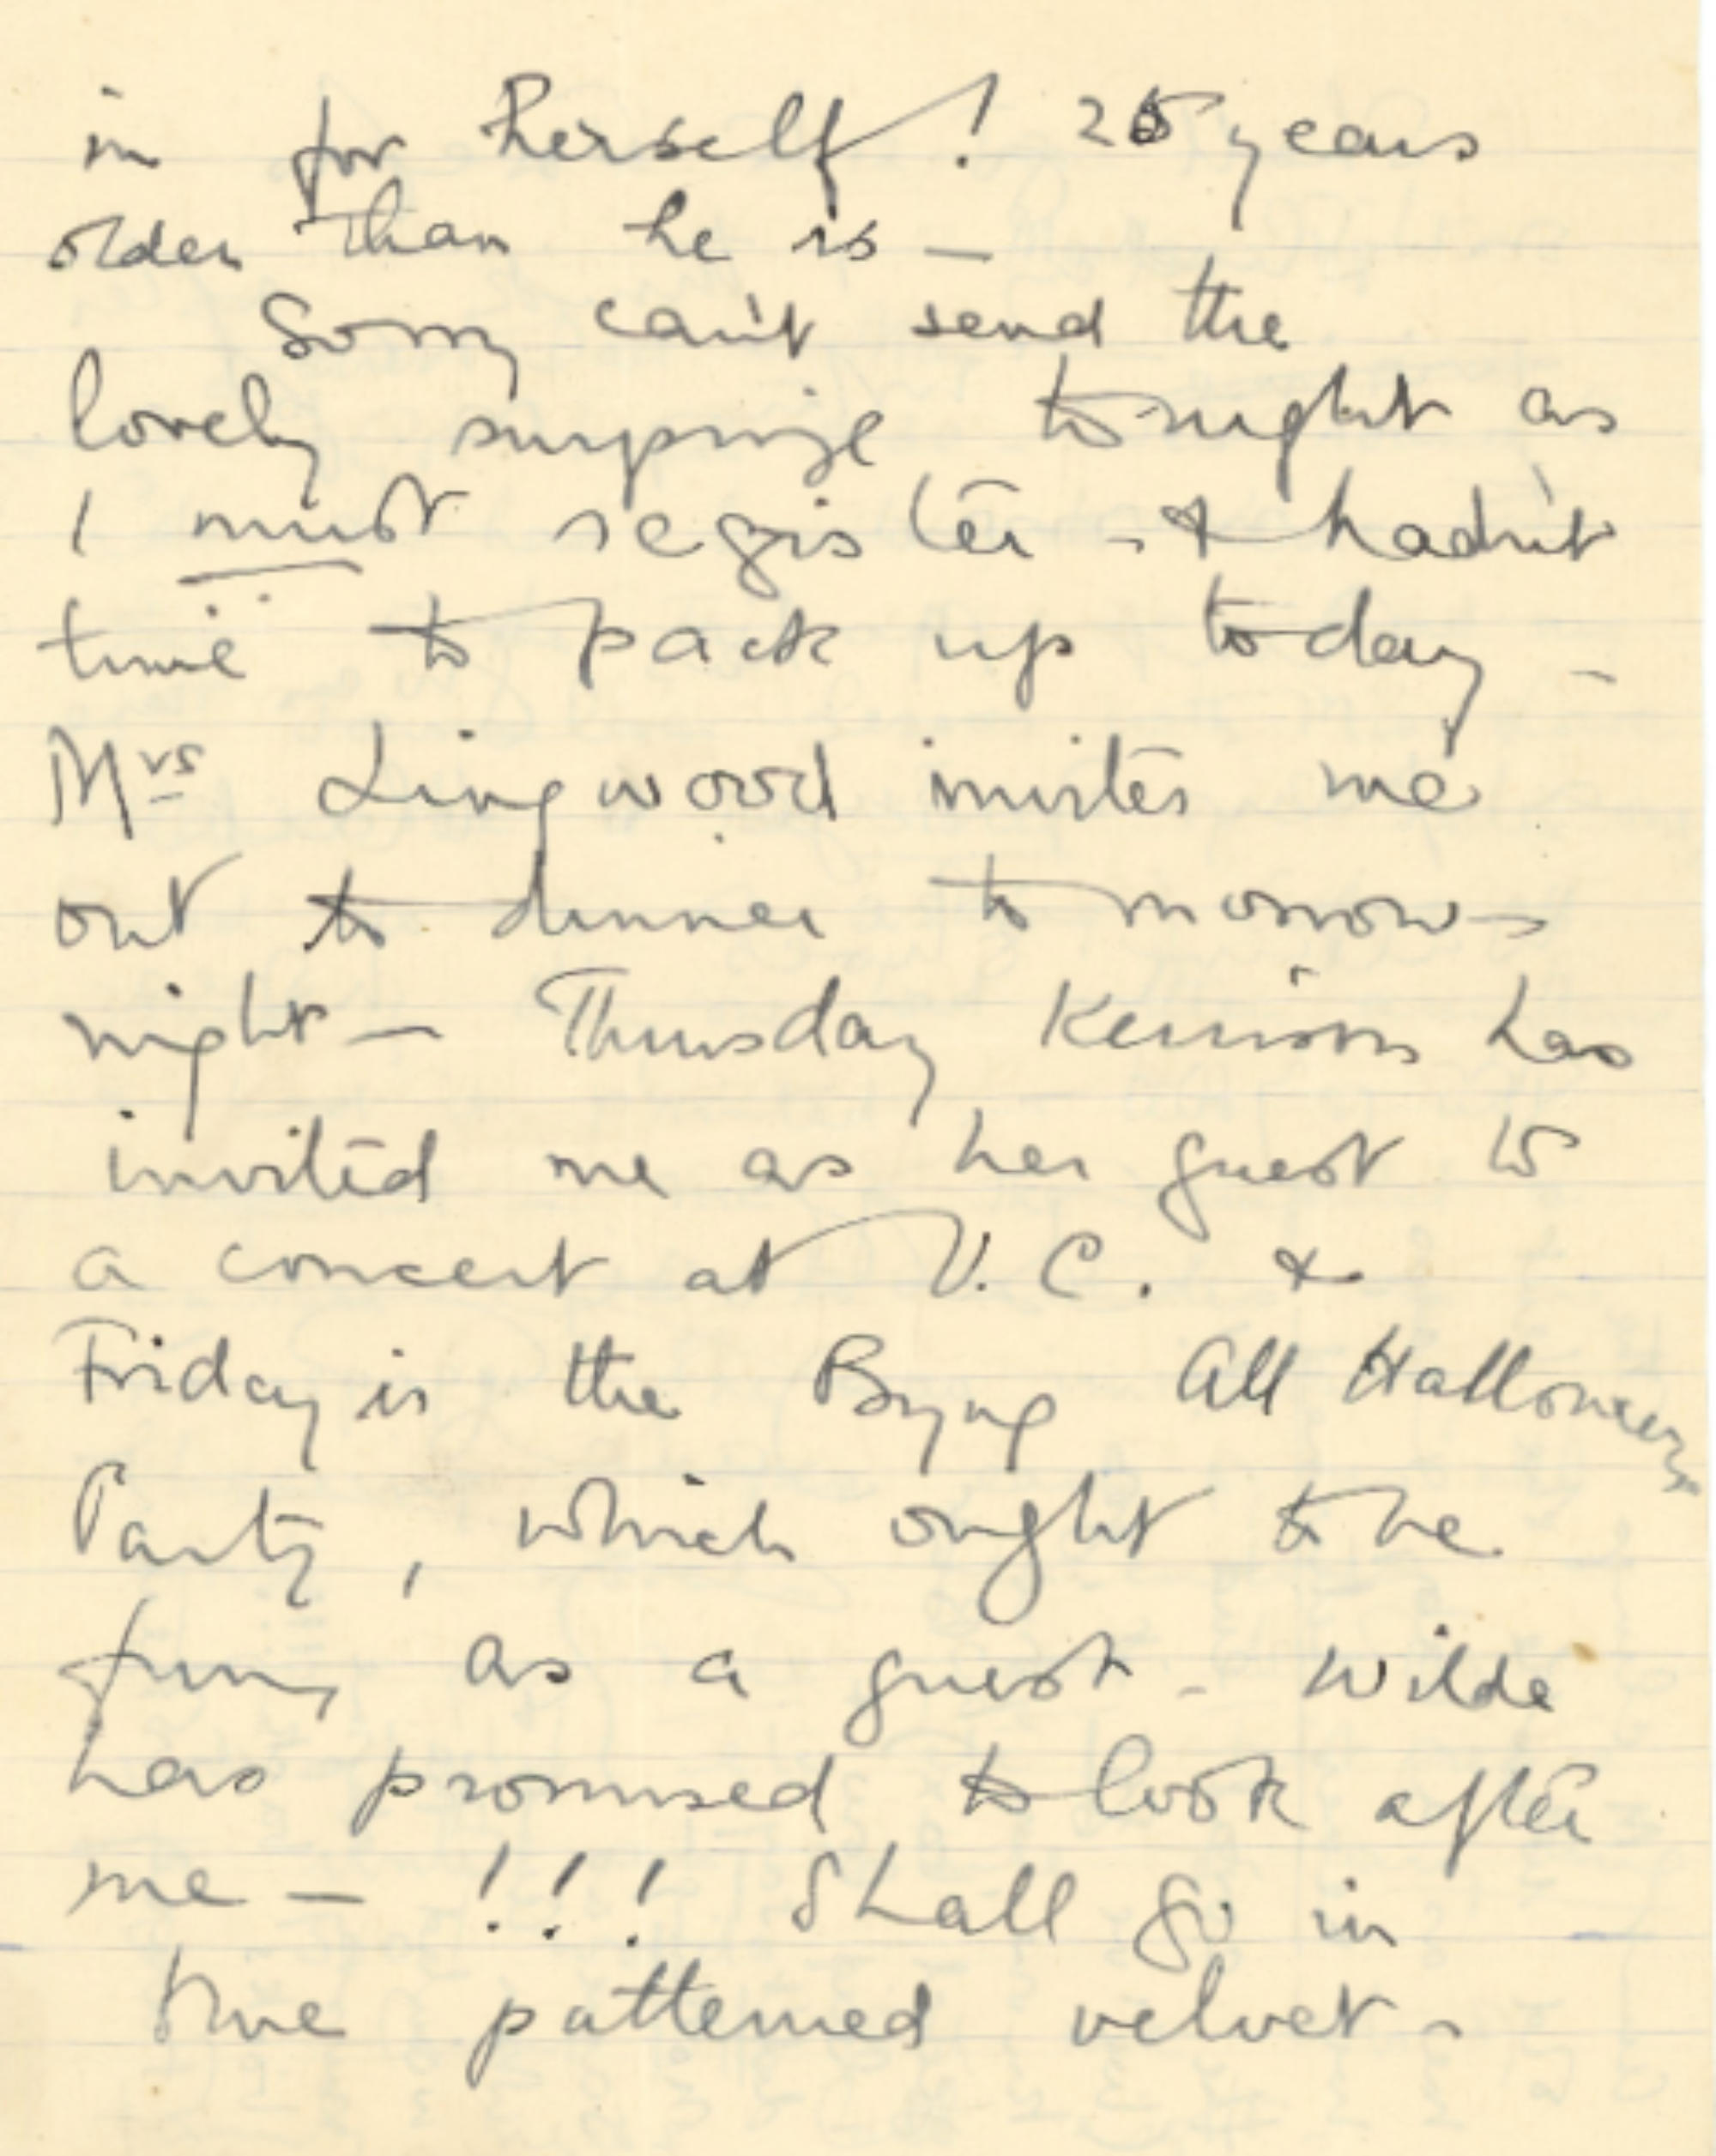 in for herself! 25 years
older than he is —
Sorry can't send the
lovely surprize tonight as
I must register - & hadn't
time to pack up today -
Mrs Lingwood invites me
out to dinner tomorrow
night — Thursday has
invited me as her guest to
a concert at V.C. &
Friday is the Byng All Halloween
Party, which ought to be
fun, as a guest - Wilde
has promised to look after
me — !!! Shall go in
blue patterned velvet -